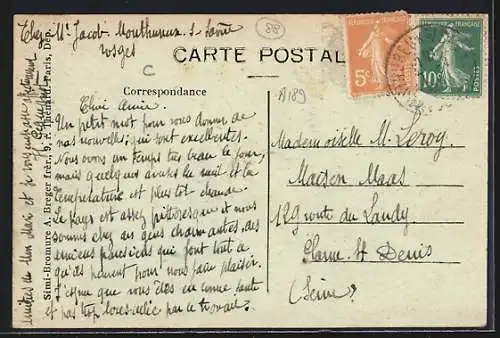 Chez Mr Jacob Monthureux s. Saône
Vosges
88
CARTE POSTALE
C
Correspondance
A189
Chère Amie.
Un petit mot pour vous donner de
nos nouvelles, qui sont excellentes.
Nous avons un temps très beau le jour,
mais quelques averses la nuit et la
température est plus tôt chaude.
Le pays est assez pittoresque et nous
sommes chez des gens charmants, des
amis parisiens qui font tout ce
qu'ils peuvent pour nous faire plaisir.
J'espère que vous êtes en bonne santé
et pas trop bousculée par le travail.
amitiés de mon mari et je
Simi-Bromure A. Breger frères, 9, r. Thénard, Paris, Dép.
REPUBLIQUE FRANÇAISE
5c
POSTES
REPUBLIQUE FRANÇAISE
10c
POSTES
Mademoiselle M. Leroy.
Maison Maas
129 route du Landy
Plaine St Denis
(Seine)